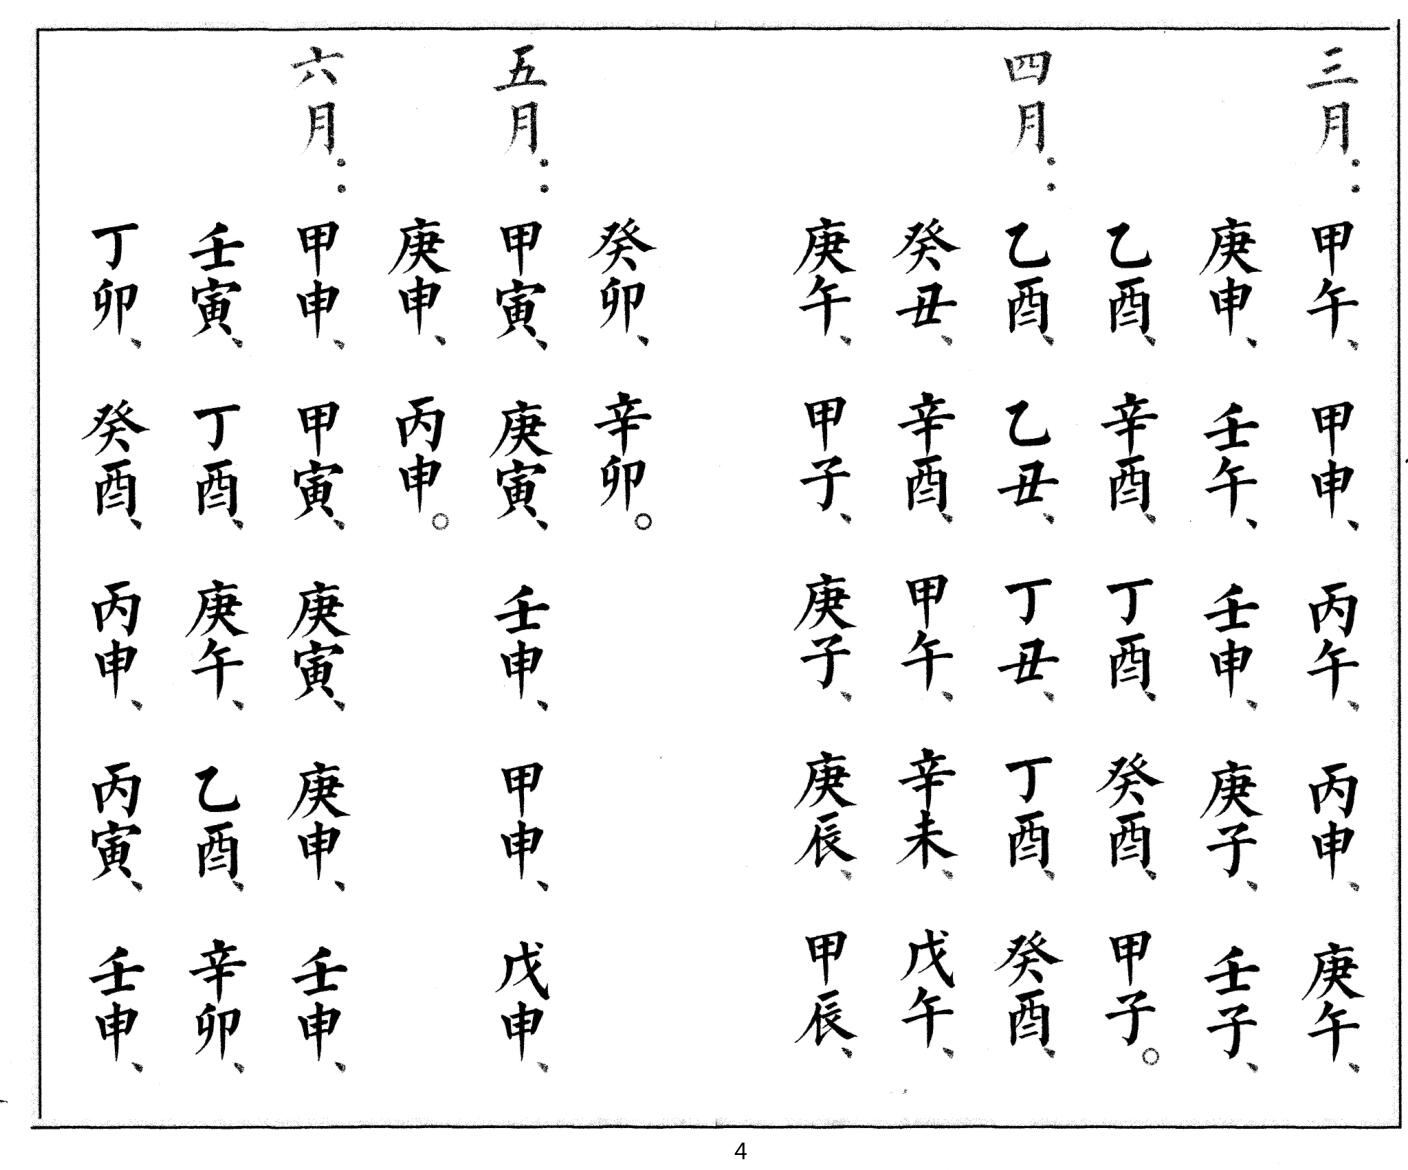 三月：甲午、甲申、丙午、丙申、庚午、
庚申、壬午、壬申、庚子、壬子、
乙酉、辛酉、丁酉、癸酉、甲子。
四月：乙酉、乙丑、丁丑、丁酉、癸酉、
癸丑、辛酉、甲午、辛未、戊午、
庚午、甲子、庚子、庚辰、甲辰、
癸卯、辛卯。
五月：甲寅、庚寅、壬申、甲申、戊申、
庚申、丙申。
六月：甲申、甲寅、庚寅、庚申、壬申、
壬寅、丁酉、庚午、乙酉、辛卯、
丁卯、癸酉、丙申、丙寅、壬申、
4